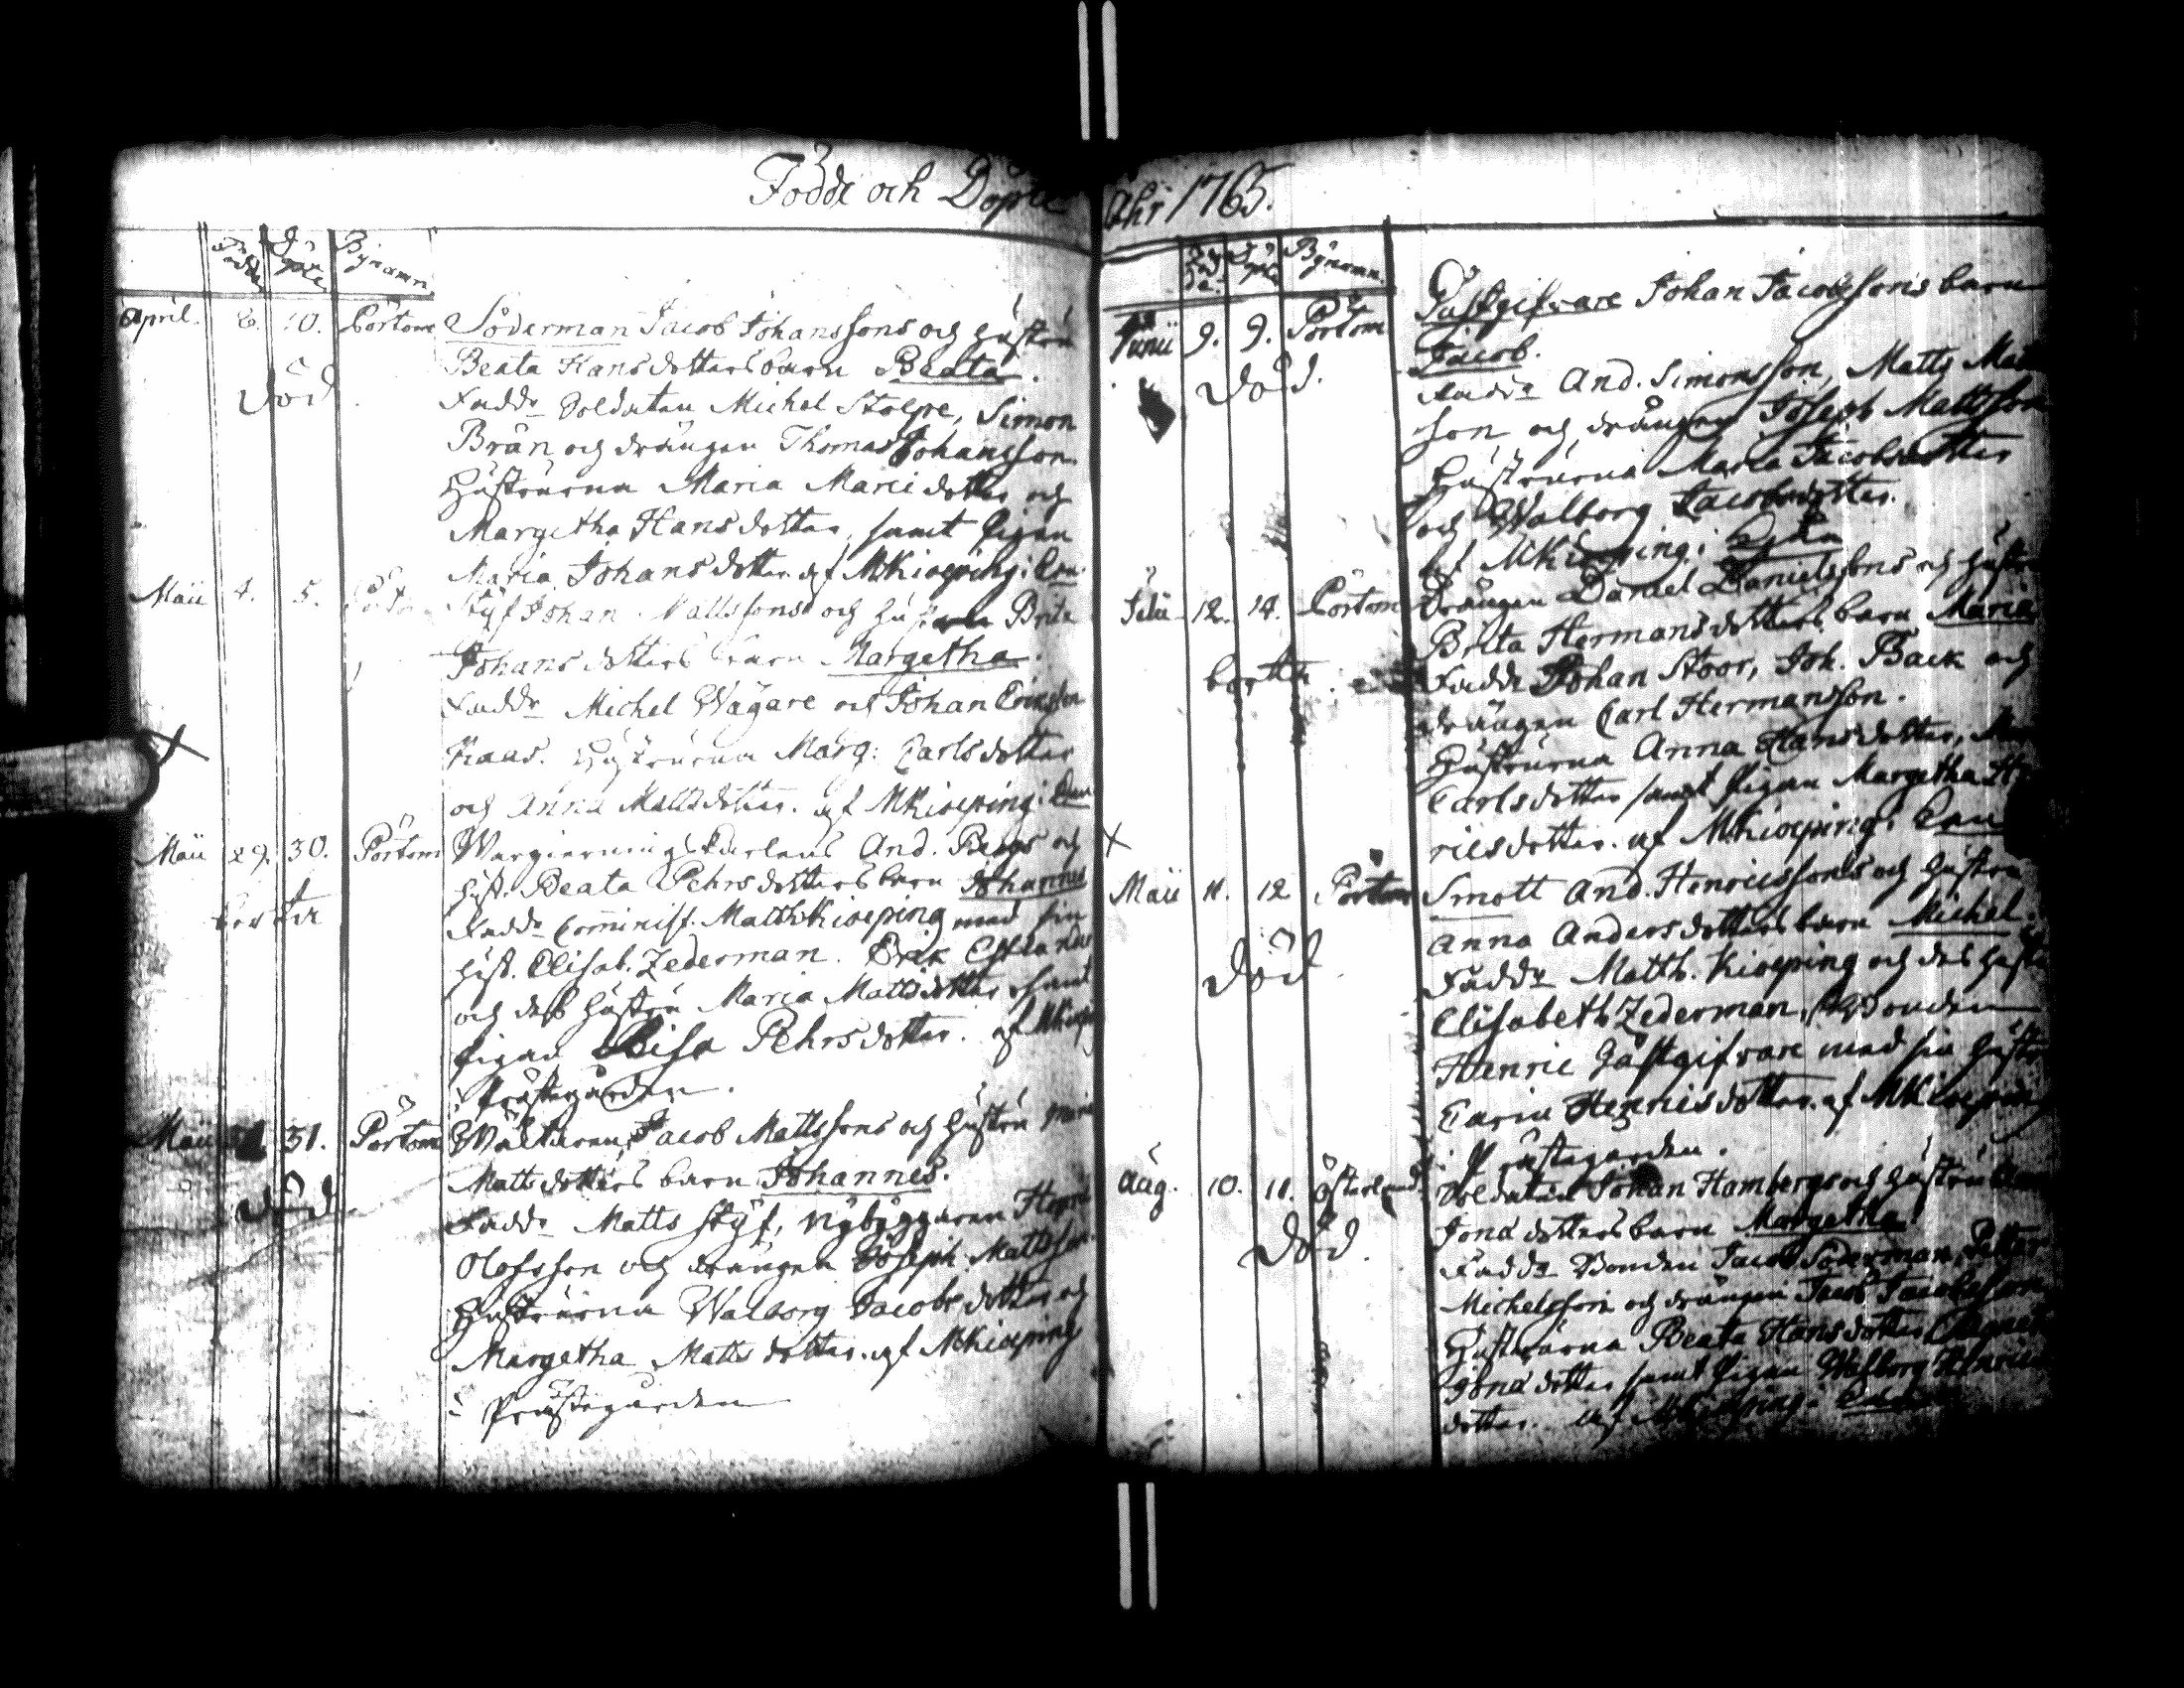 Födde och Döpte
Födde
Döpte
Bÿnamn
April. 8. 10. Pörtom Söderman Jacob Johanssons och Hustru
Beata Hansdotters barn Beata.
Död
Fadd. Soldaten Michel Stolpe, Simon
Brän och drängen Thomas Johansson
Hustrurna Maria Marci dotter och
Margetha Hansdotter, samt Pigan
Maria Johansdotter. af MKioeping i
Maii 4. 5. Styf Johan Mattssons och Hustru Brita
Johans dotters barn Margetha.
Fadd. Michel Wägare och Johan Ericsson
Kaas. Hustrurna Marg: Carlsdotter
och Anna Mattsdotter. af MKioeping i
Maii 29. 30. Pörtom Wargierningskarlens And. Bergs och
Hust. Beata Pehrsdotters barn Johannes
borta
Fadd. Comminist. Matth Kioeping med sin
Hust. Elisab. Zederman. Erik
och dess Hustru Maria Mattsdotter samt
Pigan Lisa Pehrsdotter. af MKioep
i Prästegården.
Maii 31. Pörtom Jacob Mattssons och Hustru Maria
Mattsdotters barn Johannes.
död
Fadd. Matts Styf, Nybyggaren
Olofsson och drängen Joseph Mattsson.
Hustrurna Walborg Jacobsdotter och
Margetha Matts dotter. af MKioeping
i Prästegården
Åhr 1765.
Födde
Döpte
Bÿnamn
Junii 9. 9. Pörtom Gästgifvare Johan Jacobssons barn
Jacob.
Död.
Fadd. And. Simonsson, Matts
son och drängen Joseph Mattsson
Hustrurna Maria Jacobsdotter
och Walborg Jacobsdotter.
af MKioeping i
Julii 12. 14. Pörtom Drängen Daniel Danielssons och Hustru
Brita Hermansdotters barn Maria
borta
Fadd. Johan Stoor, Joh. Back och
drängen Carl Hermansson.
Hustrurna Anna Hansdotter,
Carlsdotter samt Pigan Margetha
ricsdotter. af MKioeping i
Maii 11. 12 Pörtom Smott And. Henricssons och Hustru
Anna Andersdotters barn Michel.
Död
Fadd. Matth. Kioeping och dess Hustru
Elisabeth Zederman, Bonden
Henric Gästgifvare med sin Hustru
Carin Henricsdotter. af MKioeping
i Prästegården.
Aug. 10. 11. Österland. Soldaten Johan Hambergs och Hustru
Jonæ dotters barn Margetha
Död.
Fadd. Bonden Jacob Söderman, Petter
Michelsson och drängen Jacob Jacobsson
Hustrurna Beata Hansdotter
Jonæ dotter samt Pigan Walborg Henrics
dotter. af MKioeping.